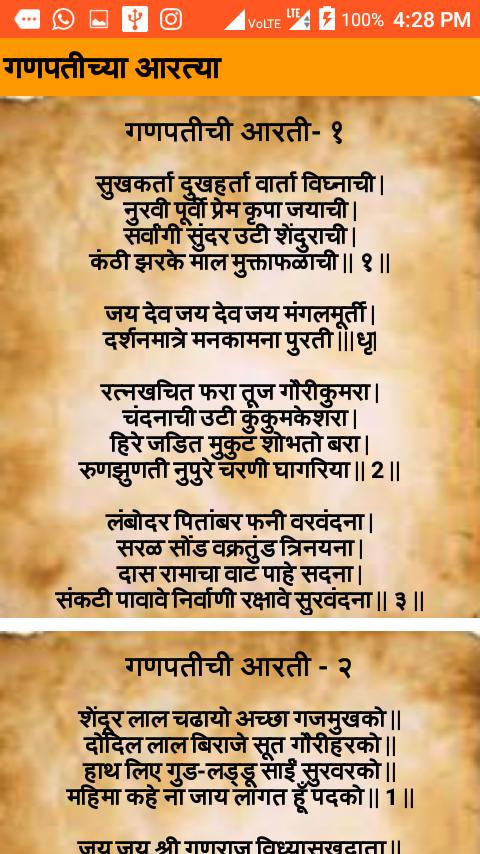 VoLTE LTE 100% 4:28 PM
गणपतीच्या आरत्या
गणपतीची आरती- १
सुखकर्ता दुखहर्ता वार्ता विघ्नाची |
नुरवी पूर्वी प्रेम कृपा जयाची |
सर्वांगी सुंदर उटी शेंदुराची |
कंठी झरके माल मुक्ताफळाची || १ ||
जय देव जय देव जय मंगलमूर्ती |
दर्शनमात्रे मनकामना पुरती |||धृ|
रत्नखचित फरा तूज गौरीकुमरा |
चंदनाची उटी कुंकुमकेशरा |
हिरे जडित मुकुट शोभतो बरा |
रुणझुणती नुपुरे चरणी घागरिया || 2 ||
लंबोदर पितांबर फनी वरवंदना |
सरळ सोंड वक्रतुंड त्रिनयना |
दास रामाचा वाट पाहे सदना |
संकटी पावावे निर्वाणी रक्षावे सुरवंदना || ३ ||
गणपतीची आरती - २
शेंदूर लाल चढायो अच्छा गजमुखको ||
दोंदिल लाल बिराजे सूत गौरीहरको ||
हाथ लिए गुड-लड्डू साईं सुरवरको ||
महिमा कहे ना जाय लागत हूँ पदको || 1 ||
जय जय श्री गणराज विध्यासुखदाता ||